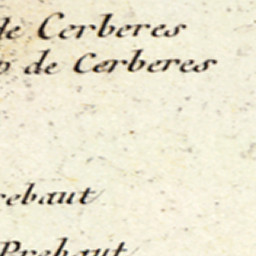 de Cerberes
de Cerberes
rebaut
Prebaut